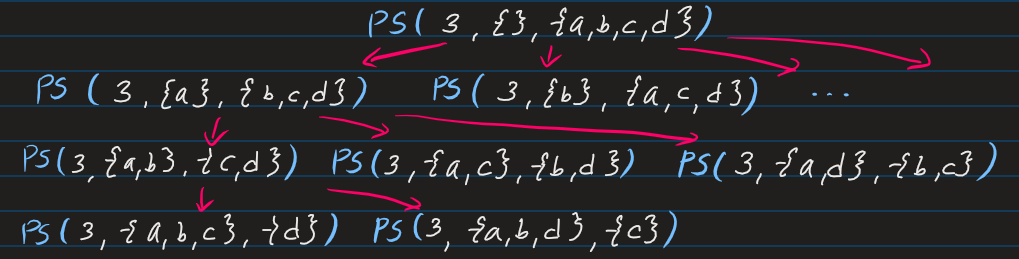 PS( 3, {}, {a,b,c,d})
PS ( 3, {a}, {b,c,d}) PS( 3, {b}, {a,c,d}) ...
PS(3,{a,b},{c,d}) PS(3,{a,c},{b,d}) PS(3,{a,d},{b,c})
PS(3,{a,b,c},{d}) PS(3,{a,b,d},{c})